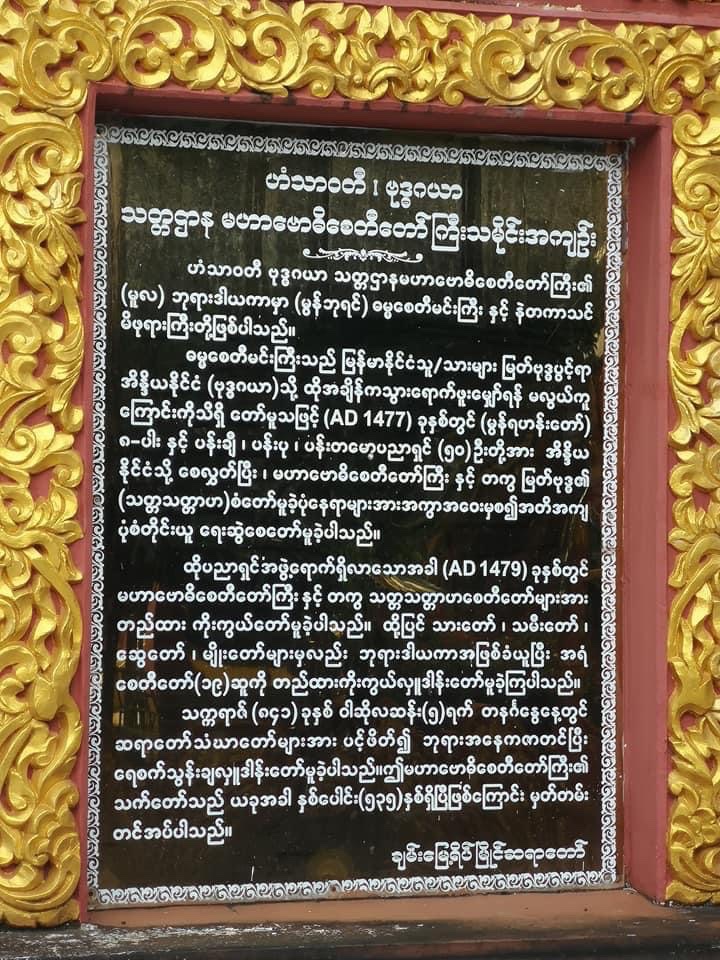 ဟံသာဝတီ ၊ ဗုဒ္ဓဂယာ
သတ္တဋ္ဌာန မဟာဗောဓိစေတီတော်ကြီးသမိုင်းအကျဉ်း
ဟံသာဝတီ ဗုဒ္ဓဂယာ သတ္တဋ္ဌာနမဟာဗောဓိစေတီတော်ကြီး၏
(မူလ) ဘုရားဒါယကာမှာ (မွန်ဘုရင်) ဓမ္မစေတီမင်းကြီး နှင့် နဲတကာသင်
မိဖုရားကြီးတို့ဖြစ်ပါသည်။
ဓမ္မစေတီမင်းကြီးသည် မြန်မာနိုင်ငံသူ/သားများ မြတ်ဗုဒ္ဓပွင့်ရာ
အိန္ဒိယနိုင်ငံ (ဗုဒ္ဓဂယာ)သို့ ထိုအချိန်ကသွားရောက်ဖူးမျှော်ရန် မလွယ်ကူ
ကြောင်းကိုသိရှိ တော်မူသဖြင့် (AD 1477) ခုနှစ်တွင် (မွန်ရဟန်းတော်)
၈-ပါး နှင့် ပန်းချီ ၊ ပန်းပု ၊ ပန်းတမော့ပညာရှင် (၅၀)ဦးတို့အား အိန္ဒိယ
နိုင်ငံသို့ စေလွှတ်ပြီး ၊ မဟာဗောဓိစေတီတော်ကြီး နှင့် တကွ မြတ်ဗုဒ္ဓ၏
(သတ္တသတ္တာဟ)စံတော်မူခဲ့ပုံနေရာများအားအကွာအဝေးမှစ၍အတိအကျ
ပုံစံတိုင်းယူ ရေးဆွဲစေတော်မူခဲ့ပါသည်။
ထိုပညာရှင်အဖွဲ့ရောက်ရှိလာသောအခါ (AD 1479) ခုနှစ်တွင်
မဟာဗောဓိစေတီတော်ကြီးနှင့် တကွ သတ္တသတ္တာဟစေတီတော်များအား
တည်ထား ကိုးကွယ်တော်မူခဲ့ပါသည်။ ထို့ပြင် သားတော် ၊ သမီးတော် ၊
ဆွေတော် ၊ မျိုးတော်များမှလည်း ဘုရားဒါယကာအဖြစ်ခံယူပြီး အရံ
စေတီတော်(၁၉)ဆူကို တည်ထားကိုးကွယ်လှူဒါန်းတော်မူခဲ့ကြပါသည်။
သက္ကရာဇ် (၈၄၁) ခုနှစ် ဝါဆိုလဆန်း(၅)ရက် တနင်္ဂနွေနေ့တွင်
ဆရာတော်သံဃာတော်များအား ပင့်ဖိတ်၍ ဘုရားအနေကဇာတင်ပြီး
ရေစက်သွန်းချလှူဒါန်းတော်မူခဲ့ပါသည်။ဤမဟာဗောဓိစေတီတော်ကြီး၏
သက်တော်သည် ယခုအခါ နှစ်ပေါင်း(၅၃၅)နှစ်ရှိပြီဖြစ်ကြောင်း မှတ်တမ်း
တင်အပ်ပါသည်။
ချမ်းမြေ့ရိပ်မြိုင်ဆရာတော်